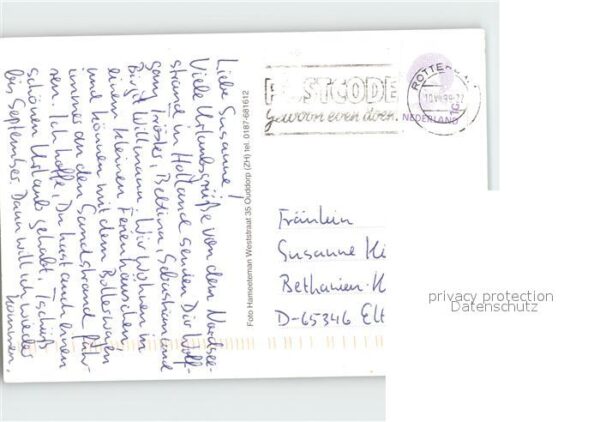 Liebe Susanne!
Viele Urlaubsgrüße von dem Nordsee-
strand in Holland senden Dir Wolf-
gang, Bettina, Sebastian und
Birgit Willmann. Wir wohnen in
einem kleinen Ferienhäuschen,
und können mit dem Bollerwagen
immer an den Sandstrand fah-
ren. Ich hoffe, Du hast auch einen
schönen Urlaub gehabt. Tschüß
bis September. Dann will ich wieder
kommen.
Foto Hameeteman Weststraat 35 Ouddorp (ZH) tel. 0187-681612
POSTCODE
gewoon even doen.
NEDERLAND
Fräulein
Susanne
Bethanien-H
D-65346 Elt
privacy protection
Datenschutz